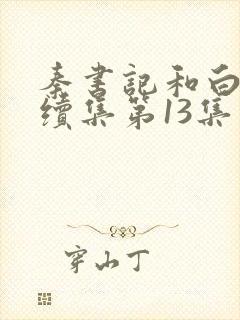 秦书記和白
續集第13集
穿山丁